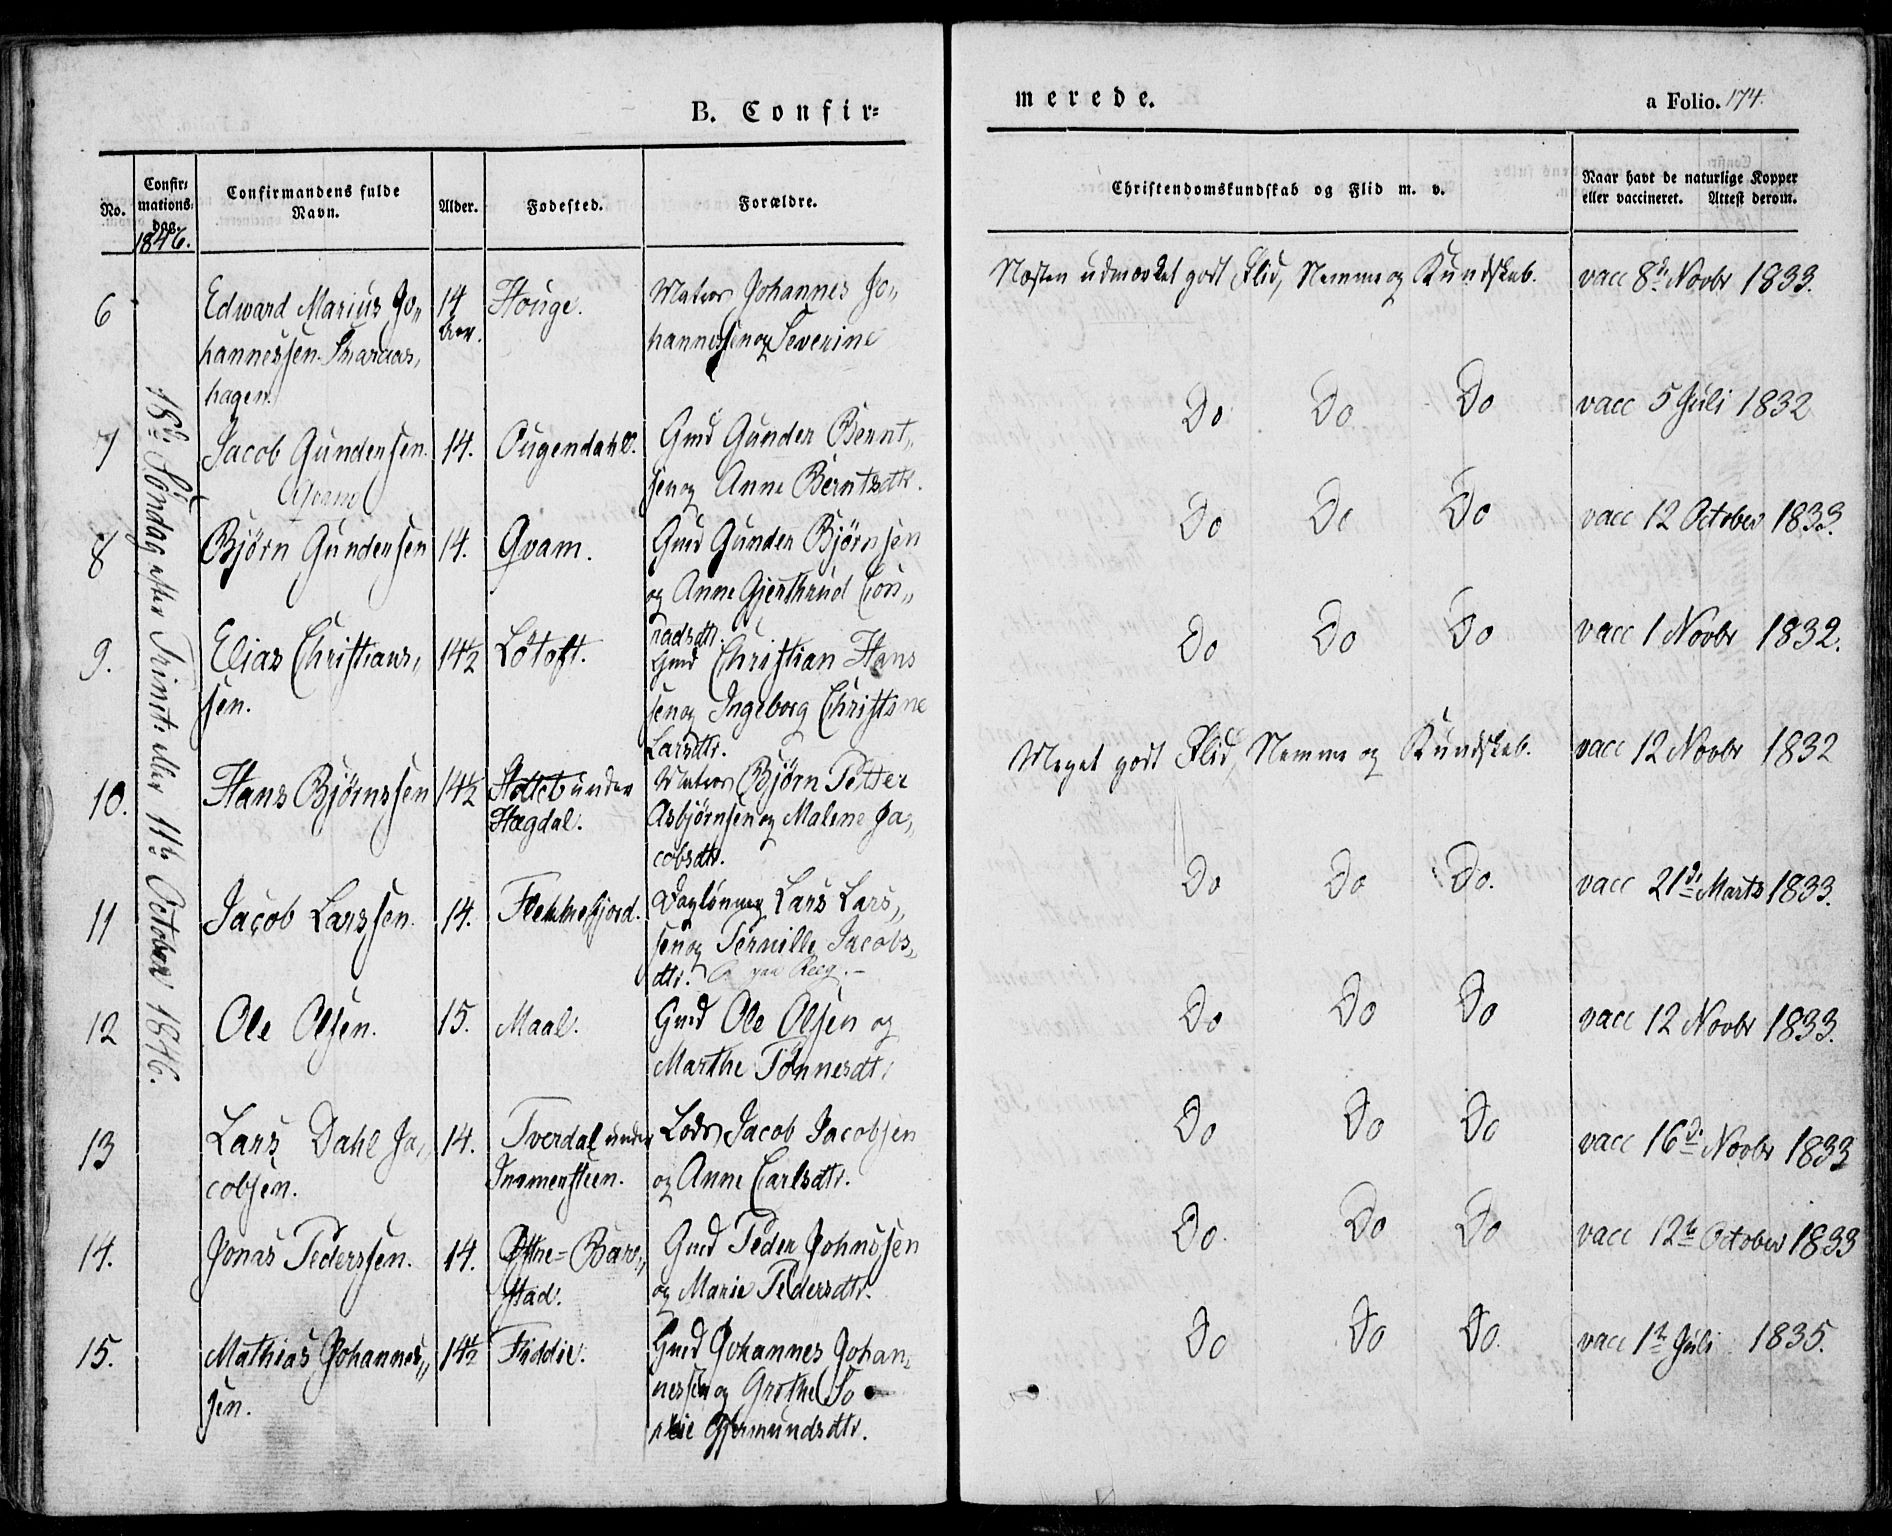 B. Confir=
merede.
a Folio. 174.
No.
Confir=
mations=
dag.
1846.
Confirmandens fulde
Navn.
Alder.
Fødested.
Forældre.
Christendomskundskab og Flid m. v.
Naar havt de naturlige Kopper
eller vaccineret. Attest derom.
18de Söndag efter Trinit: eller 11te October 1846.
6
Edward Marius Jo„
hannessen
hagen.
14
Aar.
Houge.
Matros Johannes Jo„
hannessen og Severine
Næsten udmærket godt Flid, Nemme og Kundskab.
vacc 8de Novbr 1833.
7
Jacob Gundersen.
14.
Ougendahl.
Gmd Gunder Bernt„
sen og Anne Berntsdtr.
Do Do Do
vacc 5 Juli 1832
8
Bjørn Gundersen
14.
Qvam.
Gmd Gunder Bjørnsen
og Anne Gjerthrud Con„
radsdtr.
Do Do Do
vacc 12 October 1833.
9.
Elias Christians„
sen.
14½
Lötoft.
Gmd Christian Hans
sen og Ingeborg Christine
Larsdtr.
Do Do Do
vacc 1 Novbr 1832.
10.
Hans Bjørnssen
14½
under
Hægdal.
Matros Bjørn Petter
Asbjørnsen og Malene Ja„
cobsdtr.
Meget godt Flid, Nemme og Kundskab.
vacc 12 Novbr 1832
11
Jacob Larssen.
14.
Flekkefjord.
Lars Lars„
sen og Pernille Jacobs„
dtr. paa Reeg.–
Do Do Do.
vacc 21de Marts 1833.
12
Ole Olsen.
15.
Maal.
Gmd Ole Olsen og
Marthe Tönnesdtr
Do Do Do
vacc 12 Novbr 1833.
13
Lars Dahl Ja„
cobsen.
14.
Tverdal under
Lods Jacob Jacobsen
og Anne Carlsdtr.
Do Do Do
vacc 16de Novbr 1833
14.
Jonas Pederssen.
14.
Østre=Bar„
stad.
Gmd Peder Johnssen
og Marie Pedersdtr.
Do Do Do
vacc 12te October 1833
15.
Mathias Johannes„
sen.
14½
Fiddie.
Gmd Johannes Johan„
nessen og Grethe So
phie Gjermundsdtr.
Do Do Do.
vacc 1te Juli 1835.